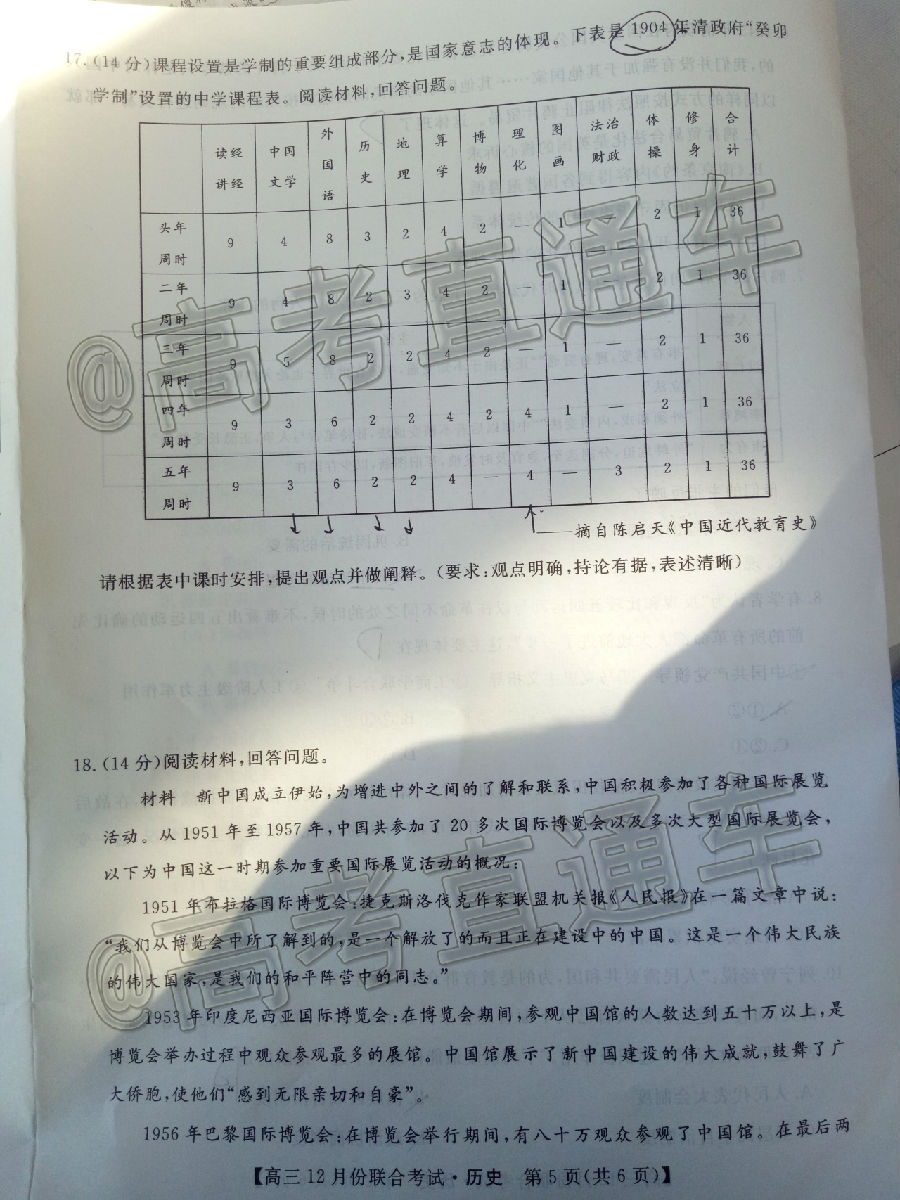 17.(14 分)课程设置是学制的重要组成部分,是国家意志的体现。下表是 1904 年清政府“癸卯
学制”设置的中学课程表。阅读材料,回答问题。
读经讲经 中国文学 外国语 历史 地理 算学 博物 理化 图画 法治财政 体操 修身 合计
头年周时 9 4 8 3 2 4 2 — 1 — 2 1 36
二年周时 9 4 8 2 3 4 2 — 1 — 2 1 36
三年周时 9 5 8 2 2 4 2 1 — 2 1 36
四年周时 9 3 6 2 2 4 2 4 1 2 1 36
五年周时 9 3 6 2 2 4 — 4 — 3 2 1 36
——摘自陈启天《中国近代教育史》
请根据表中课时安排,提出观点并做阐释。(要求:观点明确,持论有据,表述清晰)
18.(14 分)阅读材料,回答问题。
材料 新中国成立伊始,为增进中外之间的了解和联系,中国积极参加了各种国际展览
活动。从 1951 年至 1957 年,中国共参加了 20 多次国际博览会以及多次大型国际展览会,
以下为中国这一时期参加重要国际展览活动的概况:
1951 年布拉格国际博览会:捷克斯洛伐克作家联盟机关报《人民报》在一篇文章中说:
“我们从博览会中所了解到的,是一个解放了的而且正在建设中的中国。这是一个伟大民族
的伟大国家,是我们的和平阵营中的同志。”
1953 年印度尼西亚国际博览会:在博览会期间,参观中国馆的人数达到五十万以上,是
博览会举办过程中观众参观最多的展馆。中国馆展示了新中国建设的伟大成就,鼓舞了广
大侨胞,使他们“感到无限亲切和自豪”。
1956 年巴黎国际博览会:在博览会举行期间,有八十万观众参观了中国馆。在最后两
【高三 12 月份联合考试·历史 第 5 页(共 6 页)】
@高考直通车
@高考直通车